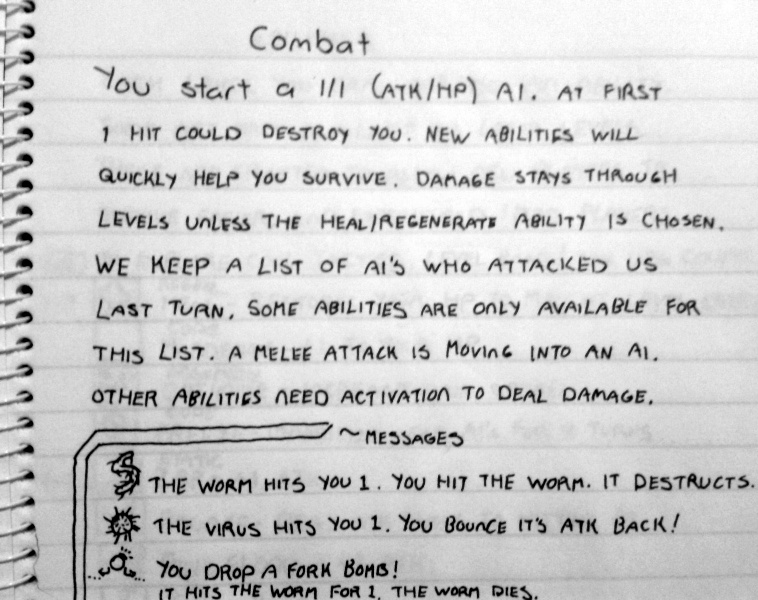 Combat
You start a 1/1 (ATK/HP) AI. AT FIRST
1 HIT COULD DESTROY YOU. NEW ABILITIES WILL
QUICKLY HELP YOU SURVIVE. DAMAGE STAYS THROUGH
LEVELS UNLESS THE HEAL/REGENERATE ABILITY IS CHOSEN.
WE KEEP A LIST OF AI'S WHO ATTACKED US
LAST TURN. SOME ABILITIES ARE ONLY AVAILABLE FOR
THIS LIST. A MELEE ATTACK IS MOVING INTO AN AI.
OTHER ABILITIES NEED ACTIVATION TO DEAL DAMAGE.
~MESSAGES
THE WORM HITS YOU 1. YOU HIT THE WORM. IT DESTRUCTS.
THE VIRUS HITS YOU 1. YOU BOUNCE IT'S ATK BACK!
YOU DROP A FORK BOMB!
IT HITS THE WORM FOR 1. THE WORM DIES.